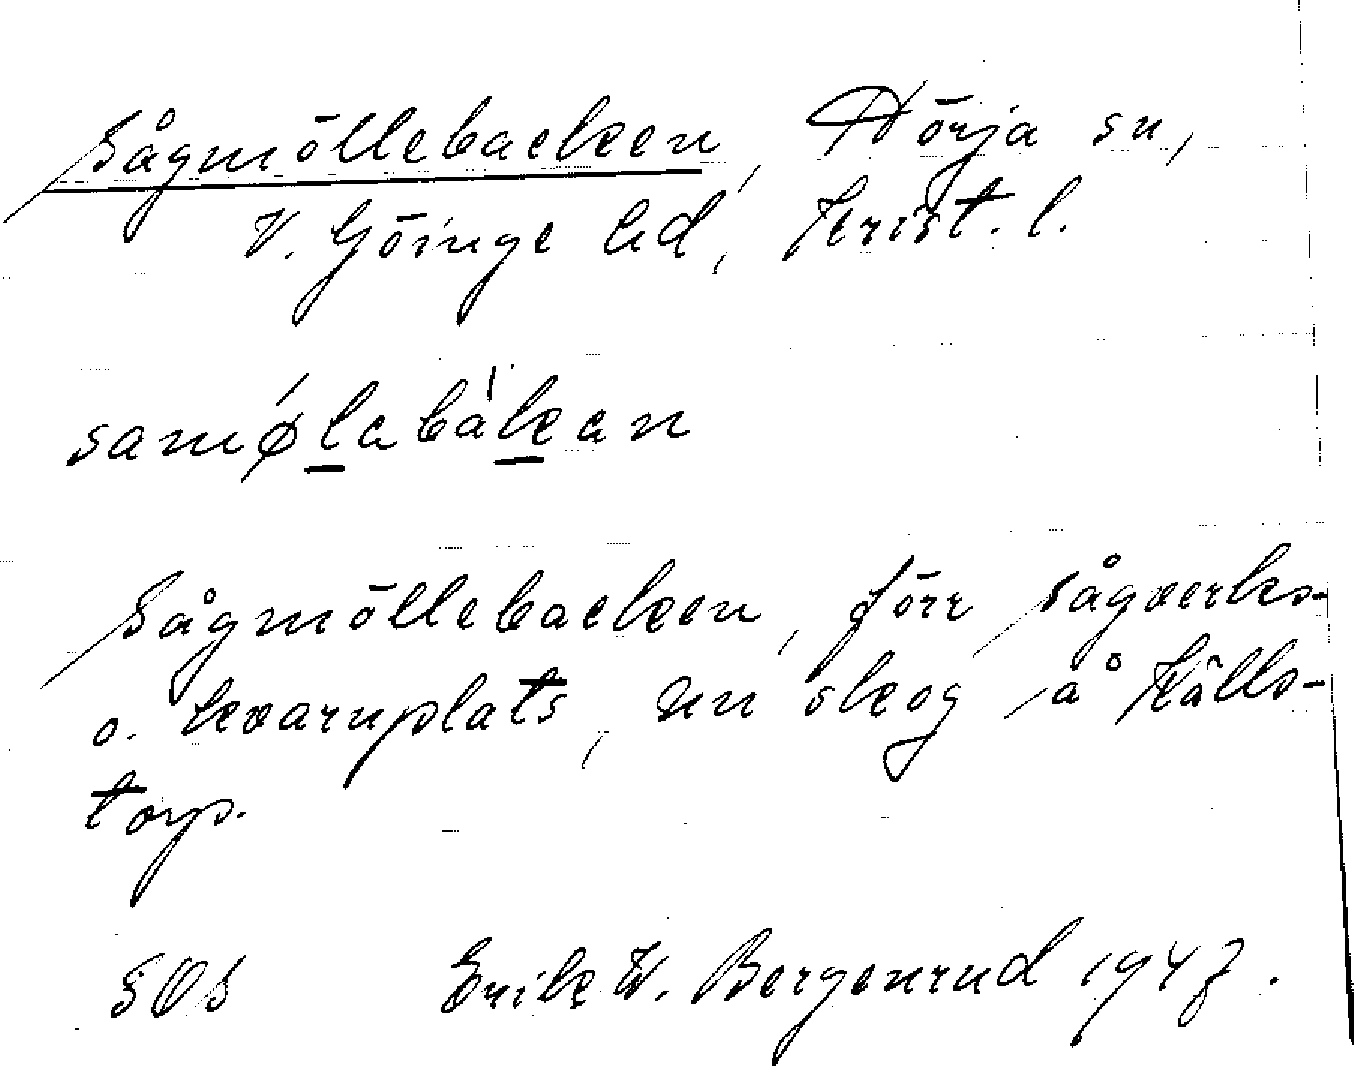 Sågmöllebacken, Hörja sn,
V. Göinge hd, Krist. l.
samølabakan
Sågmöllebacken, förr sågverks-
o. kvarnplats, nu skog, å Källs-
torp.
SOS Erik W. Bergenrud 1947.